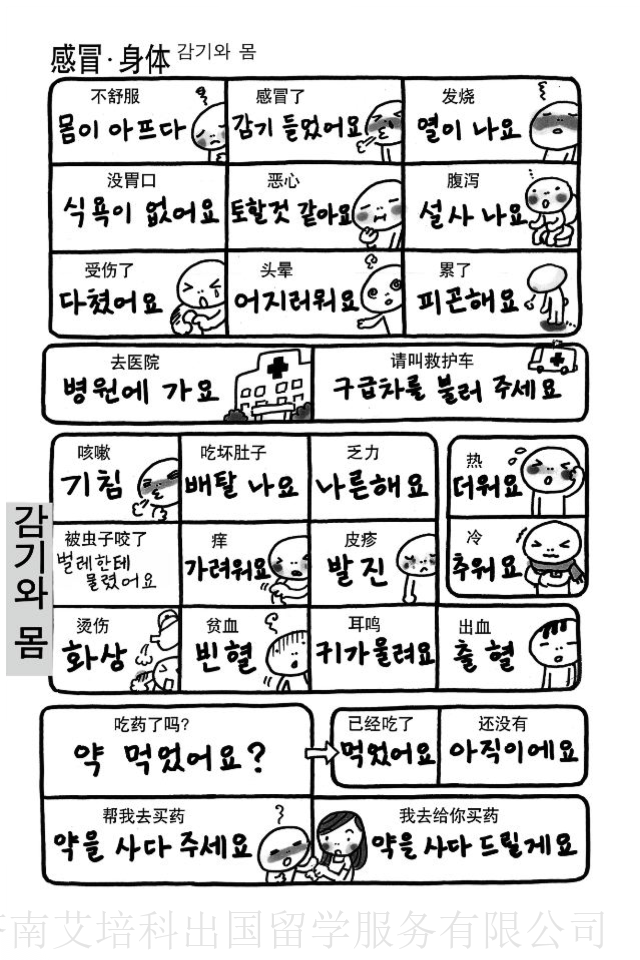 感冒·身体 감기와 몸
不舒服
몸이 아프다
感冒了
감기 들었어요
发烧
열이 나요
没胃口
식욕이 없어요
恶心
토할것 같아요
腹泻
설사 나요
受伤了
다쳤어요
头晕
어지러워요
累了
피곤해요
去医院
병원에 가요
请叫救护车
구급차를 불러 주세요
咳嗽
기침
吃坏肚子
배탈 나요
乏力
나른해요
热
더워요
被虫子咬了
벌레한테
물렸어요
痒
가려워요
皮疹
발진
冷
추워요
烫伤
화상
贫血
빈혈
耳鸣
귀가울려요
出血
출혈
감기와 몸
吃药了吗?
약 먹었어요?
已经吃了
먹었어요
还没有
아직이에요
帮我去买药
약을 사다 주세요
我去给你买药
약을 사다 드릴게요
济南艾培科出国留学服务有限公司